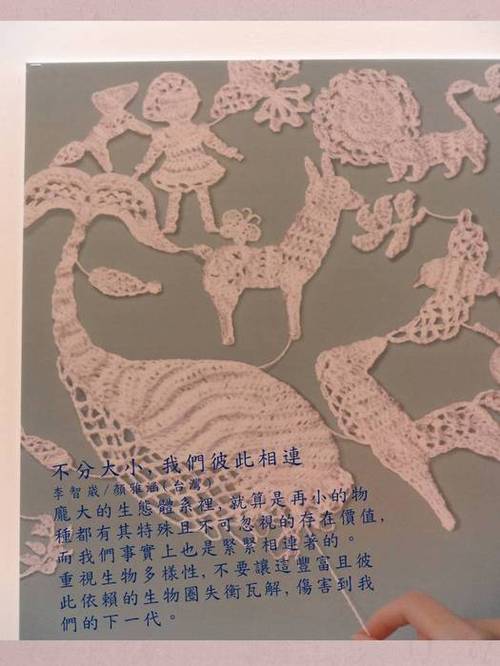 不分大小,我們彼此相連
李智崴/顏雅涵(台灣)
龐大的生態體系裡,就算是再小的物
種都有其特殊且不可忽視的存在價值,
而我們事實上也是緊緊相連著的。
重視生物多樣性,不要讓這豐富且彼
此依賴的生物圈失衡瓦解,傷害到我
們的下一代。